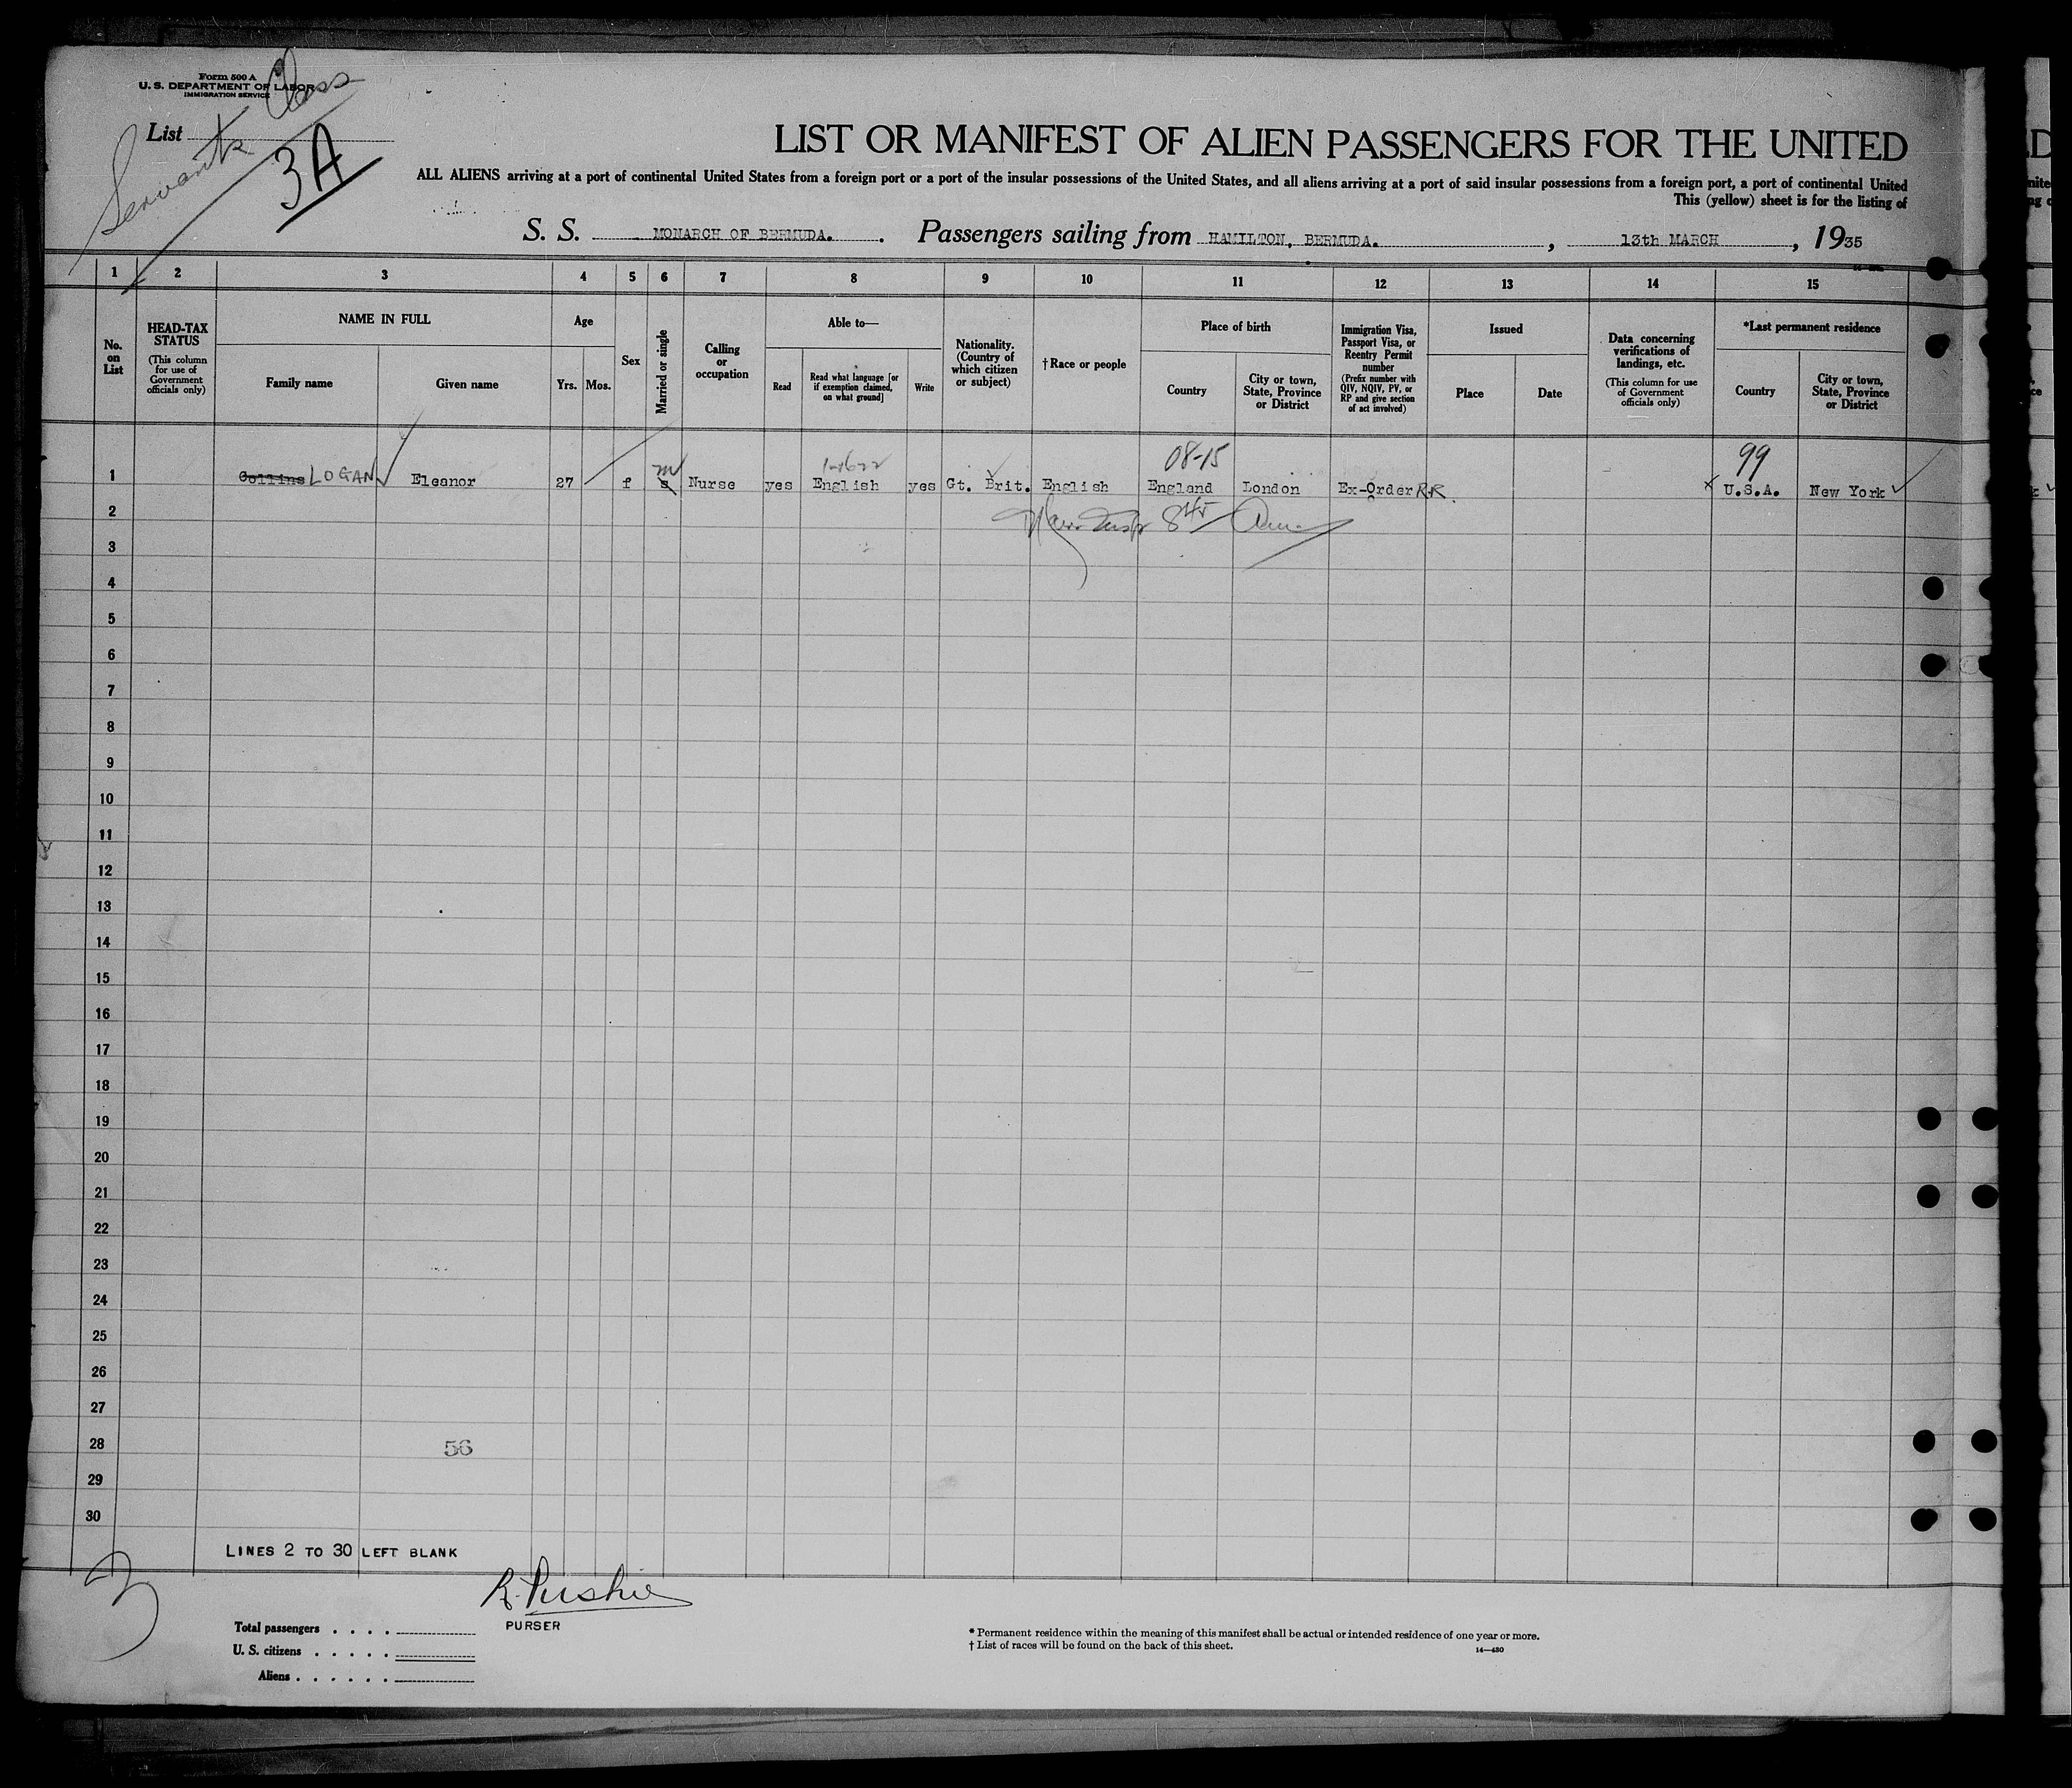 Form 500 A
U. S. DEPARTMENT OF LABOR
IMMIGRATION SERVICE
List
Servants Class
3A
LIST OR MANIFEST OF ALIEN PASSENGERS FOR THE UNITED
ALL ALIENS arriving at a port of continental United States from a foreign port or a port of the insular possessions of the United States, and all aliens arriving at a port of said insular possessions from a foreign port, a port of continental United
This (yellow) sheet is for the listing of
S. S. MONARCH OF BERMUDA. . Passengers sailing from HAMILTON, BERMUDA. , 13th MARCH , 1935
1 2 3 4 5 6 7 8 9 10 11 12 13 14 15
No. on List
HEAD-TAX STATUS
(This column for use of Government officials only)
NAME IN FULL
Family name
Given name
Age
Yrs. Mos.
Sex
Married or single
Calling or occupation
Able to—
Read
Read what language [or if exemption claimed, on what ground]
Write
Nationality. (Country of which citizen or subject)
†Race or people
Place of birth
Country
City or town, State, Province or District
Immigration Visa, Passport Visa, or Reentry Permit number
(Prefix number with QIV, NQIV, PV, or RP and give section of act involved)
Issued
Place
Date
Data concerning verifications of landings, etc.
(This column for use of Government officials only)
*Last permanent residence
Country
City or town, State, Province or District
08-15 99
1 Collins LOGAN Eleanor 27 f s m Nurse yes English yes Gt. Brit. English England London Ex-Order RR. x U.S.A. New York
2
3
4
5
6
7
8
9
10
11
12
13
14
15
16
17
18
19
20
21
22
23
24
25
26
27
28 56
29
30
LINES 2 TO 30 LEFT BLANK
PURSER
Total passengers . . . .
U. S. citizens . . . . .
Aliens . . . . . .
* Permanent residence within the meaning of this manifest shall be actual or intended residence of one year or more.
† List of races will be found on the back of this sheet.
14—430